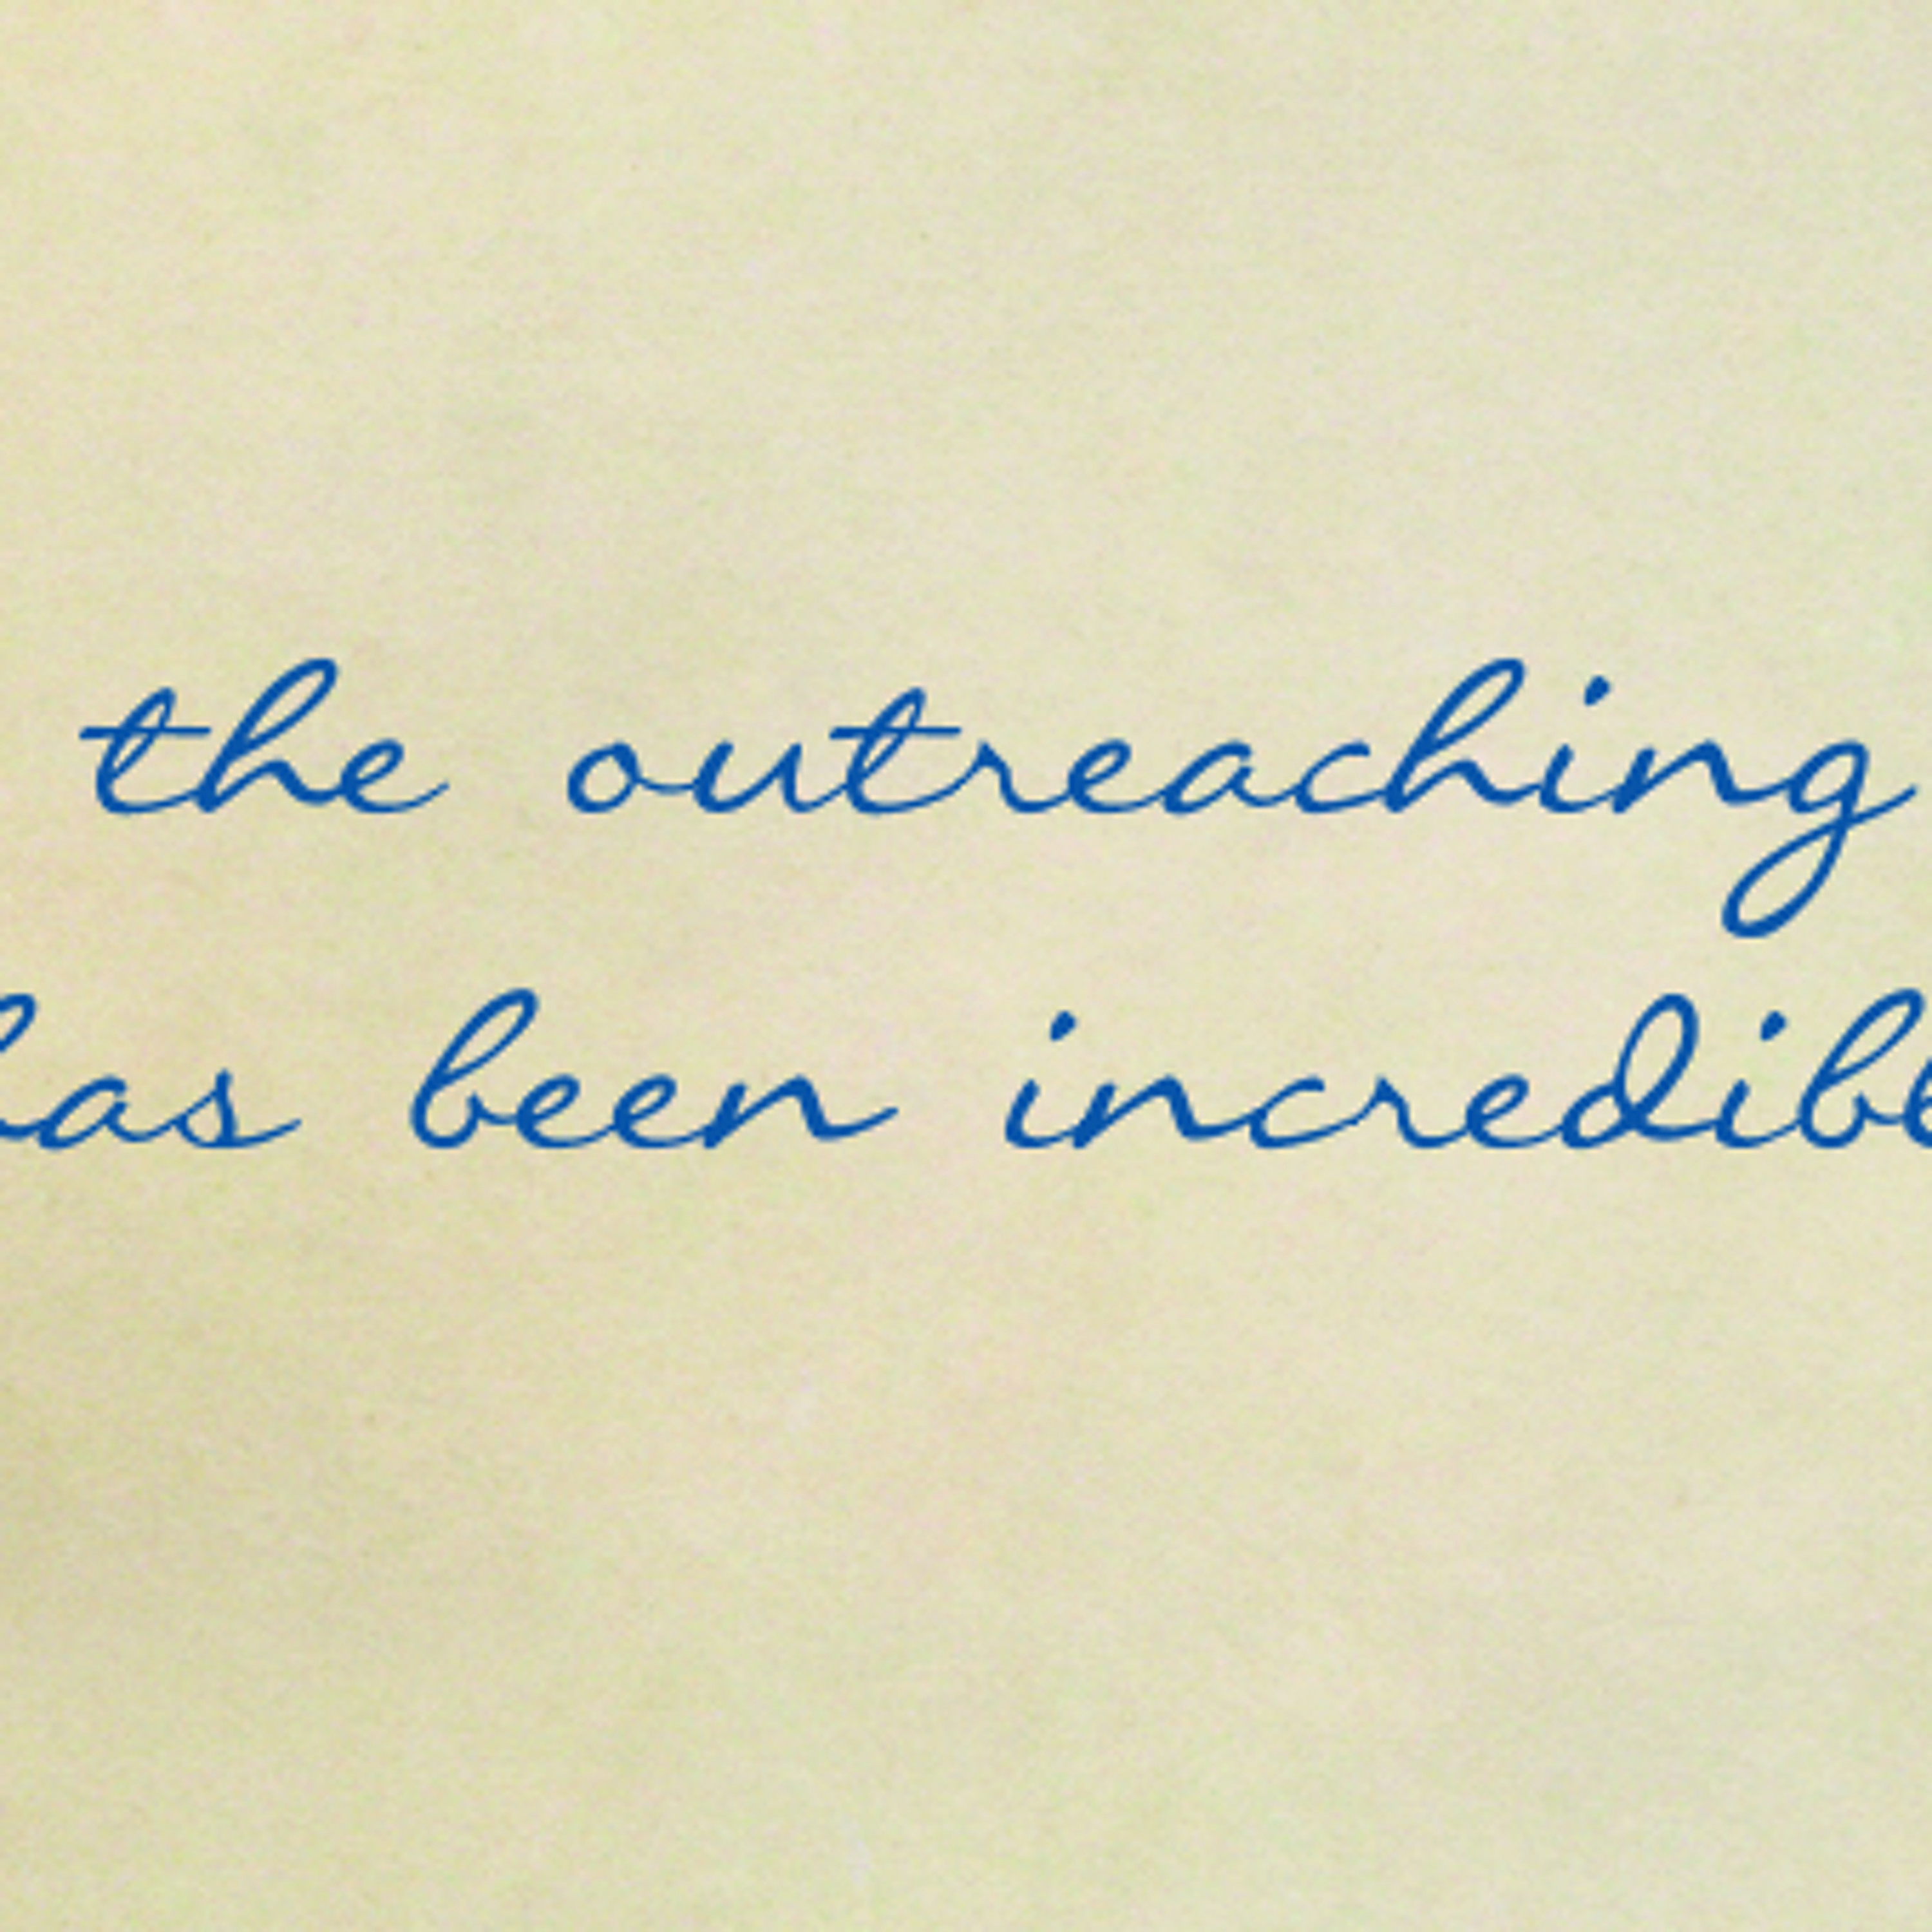 the outreaching
has been incredibe